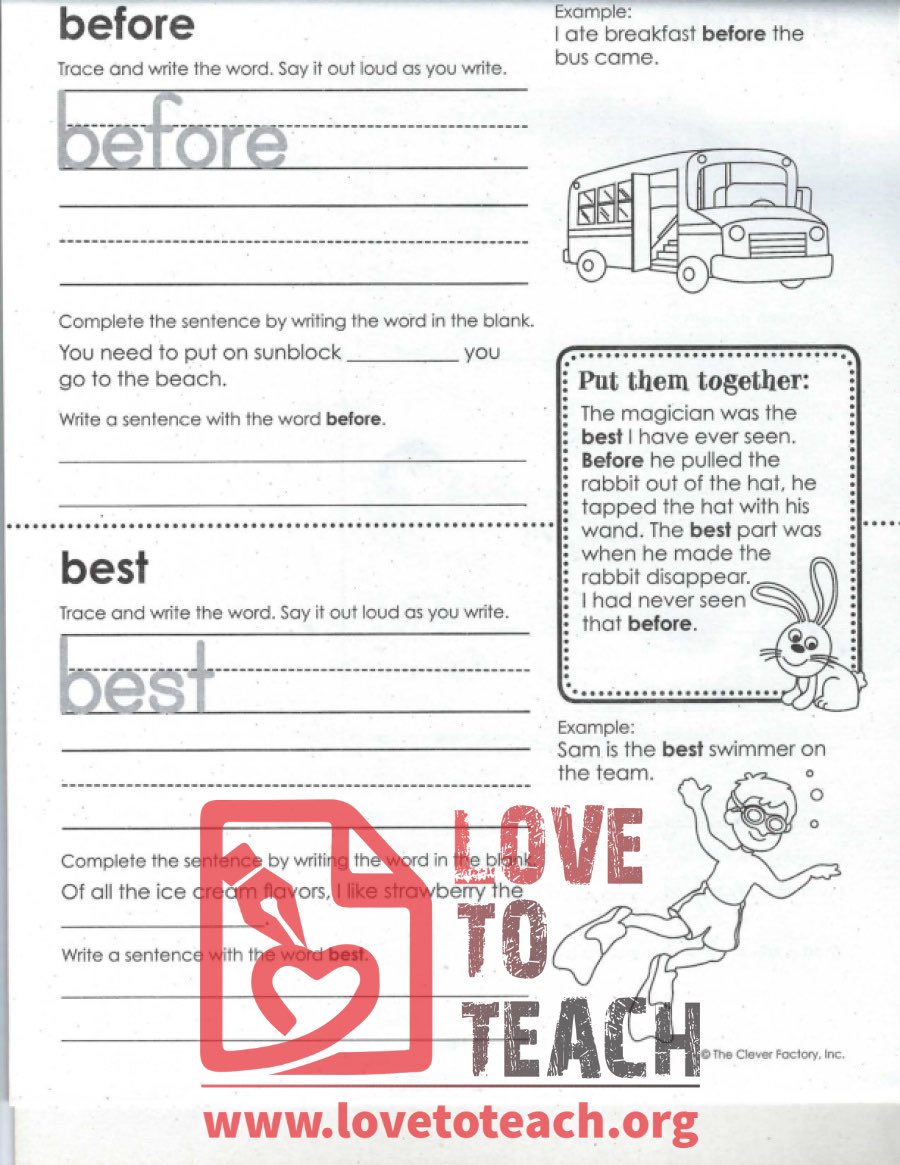 before
Trace and write the word. Say it out loud as you write.
before
Complete the sentence by writing the word in the blank.
You need to put on sunblock __________ you
go to the beach.
Write a sentence with the word before.
Example:
I ate breakfast before the
bus came.
Put them together:
The magician was the
best I have ever seen.
Before he pulled the
rabbit out of the hat, he
tapped the hat with his
wand. The best part was
when he made the
rabbit disappear.
I had never seen
that before.
best
Trace and write the word. Say it out loud as you write.
best
Complete the sentence by writing the word in the blank.
Of all the ice cream flavors, I like strawberry the
__________.
Write a sentence with the word best.
Example:
Sam is the best swimmer on
the team.
© The Clever Factory, Inc.
LOVE
TO
TEACH
www.lovetoteach.org